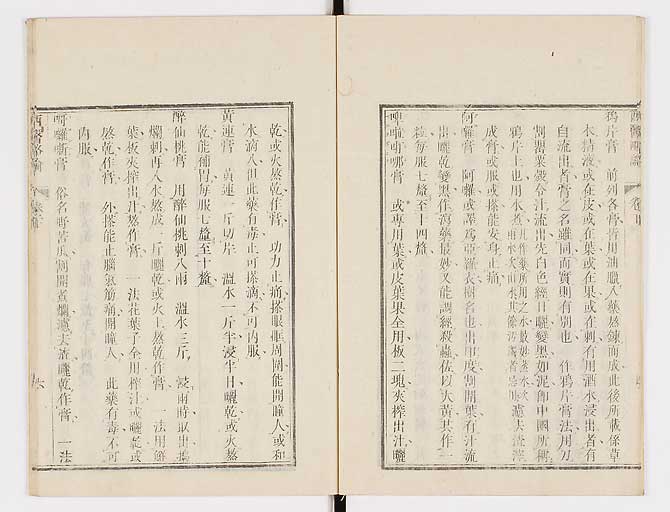 鴉片膏　前列各膏皆用油臘入藥熬鍊而成此後所載係草
木精液或在皮或在葉或在果或在刺有用酒水浸出者有
自流出者膏之名雖同而實則有別也　作鴉片膏法用刀
割罌粟殼令汁流出先白色經日曬變黑如泥飾中國所稱
鴉片土也用水煮
濾去渣滓
成膏或服或搽能安身止痛
阿囉膏　阿囉或譯爲亞羅衣樹名也出印度割開葉有汁流
出曬乾變黑作瀉藥最妙又能調經殺蟲佐以大黃共作一
粒每服七釐至十四釐
或專用葉或皮葉果全用板二塊夾榨出汁曬
乾或火熬乾作膏　功力止痛搽眼眶周圍能開瞳人或和
水滴入但此藥有毒止可搽滴不可內服
黃連膏　黃連一斤切片　溫水一斤半浸半日曬乾或火熬
乾能補胃每服七釐至十釐
醉仙桃膏　用醉仙桃刺八兩　溫水三斤　浸兩時取出搗
爛刺再入水熬成一斤曬乾或火上熬乾作膏　一法用鮮
葉板夾榨出汁熬乾作膏　一法花葉子全用榨汁或曬或
熬乾作膏　外搽能止腦氣筋痛開瞳人　此藥有毒不可
內服
俗名苦瓜割開煮爛濾去渣曬乾作膏　一法